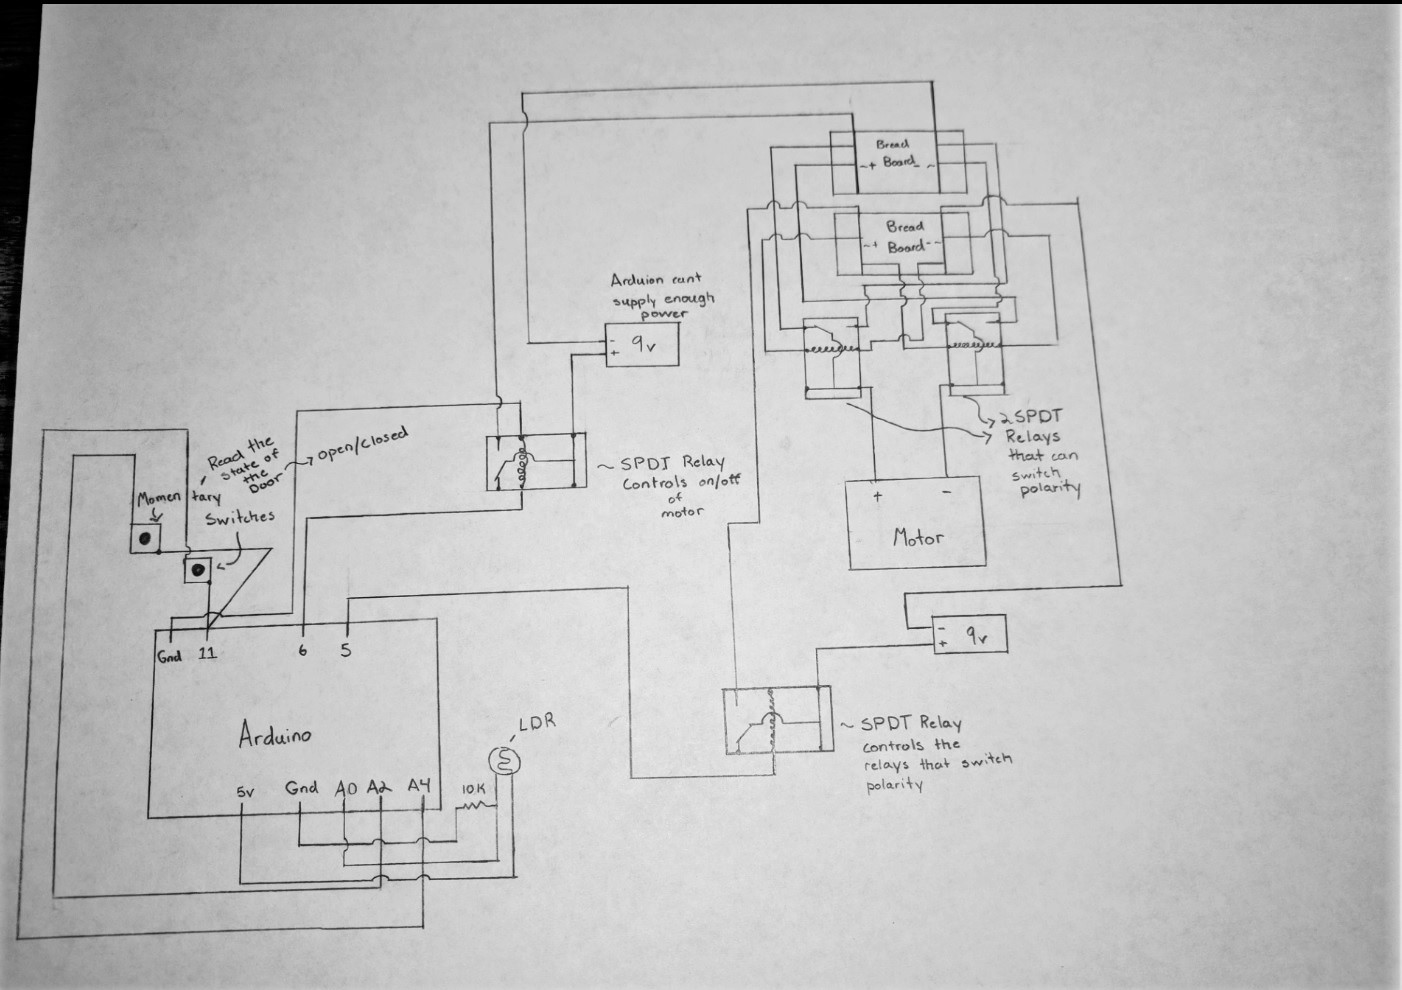 Bread
~+ Board_ ~
Bread
~+ Board--
Arduion cant
supply enough
power
-
+ 9v
2 SPDT
Relays
that can
switch
polarity
Read the
state of
the
Door
open/closed
Momen tary
Switches
~ SPDT Relay
Controls on/off
of
motor
+ -
Motor
-
+ 9v
Gnd 11 6 5
Arduino
LDR
5v Gnd A0 A2 A4 10K
~ SPDT Relay
controls the
relays that switch
polarity